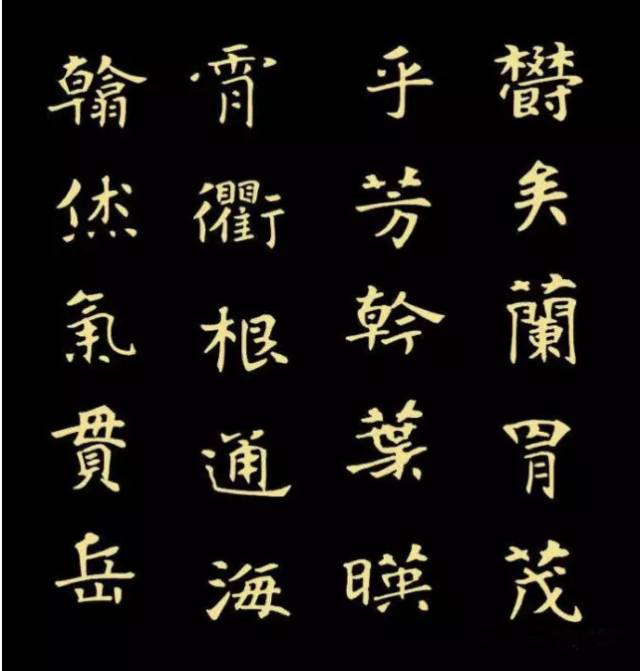 欝矣蘭冑茂
乎芳幹葉暎
霄衢根通海
翰烋氣貫岳